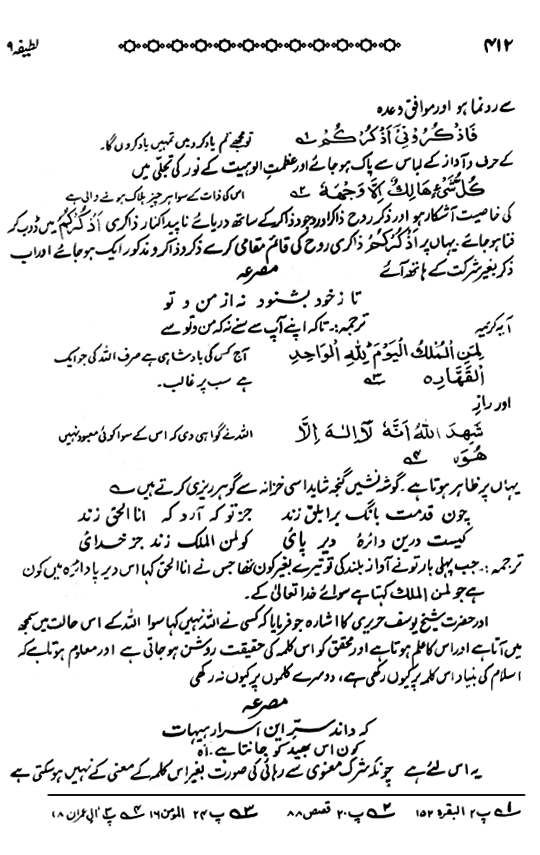 ۴۱۲ لطیفہ ۹
سے رونما ہو اور موافق وعدہ
فَاذْكُرُوْنِیْٓ اَذْكُرْكُمْ ۱ تو مجھے تم یاد کرو میں تمہیں یاد کروں گا۔
کے حرف و آواز کے لباس سے پاک ہو جائے اور عظمتِ الوہیت کے نور کی تجلی میں
كُلُّ شَیْءٍ هَالِكٌ اِلَّا وَجْهَهٗ ۲ اس کی ذات کے سوا ہر چیز ہلاک ہونے والی ہے
کی خاصیت آشکارا ہو اور ذکر روح ذاکر اور وجود ذاکر کے ساتھ دریائے ناپیدا کنار ذاکری اَذْكُرْكُمْ میں ڈوب کر
فنا ہو جائے۔ یہاں پر اَذْكُرْكُمْ ذاکری روح کی قائم مقامی کرے ذکر و ذاکر و مذکور ایک ہو جائے اور اب
ذکر بغیر شرکت کے ہاتھ آئے مصرعہ
تا ز خود بشنود نہ از من و تو
آیہ کریمہ ترجمہ:۔ تاکہ اپنے آپ سے سنے نہ کہ من و تو سے
لِمَنِ الْمُلْكُ الْیَوْمَ لِلّٰهِ الْوَاحِدِ آج کس کی بادشاہی ہے صرف اللہ کی جو ایک
الْقَهَّارِ ۳ ہے سب پر غالب۔
اور راز
شَهِدَ اللّٰهُ اَنَّهٗ لَآ اِلٰهَ اِلَّا اللہ نے گواہی دی کہ اس کے سوا کوئی معبود نہیں
هُوَ ۴
یہاں پر ظاہر ہوتا ہے۔ گوشہ نشیں گنجہ شاید اسی خزانہ سے گوہر ریزی کرتے ہیں
چون قدمت بانگ بر ابلق زند جز تو کہ آرد کہ انا الحق زند
کیست درین دائرۂ دیر پائی کو لمن الملک زند جز خدائی
ترجمہ:۔ جب پہلی بار تو نے آواز بلند کی تو تیرے بغیر کون تھا جس نے انا الحق کہا اس دیر پا دائرہ میں کون
ہے جو لمن الملک کہتا ہے سوائے خدا تعالیٰ کے۔
اور حضرت شیخ یوسف حریری کا اشارہ جو فرمایا کہ کسی نے اللہ نہیں کہا سوا اللہ کے اس حالت میں سمجھ
میں آتا ہے اور اس کا علم ہوتا ہے اور محقق کو اس کلمہ کی حقیقت روشن ہو جاتی ہے اور معلوم ہوتا ہے کہ
اسلام کی بنیاد اس کلمہ پر کیوں رکھی ہے، دوسرے کلموں پر کیوں نہ رکھی
مصرعہ
کہ داند سرّ این اسرار ہیہات
کون اس بھید کو جانتا ہے۔ آہ
یہ اس لئے ہے چونکہ شرک معنوی سے رہائی کی صورت بغیر اس کلمہ کے معنی کے نہیں ہو سکتی ہے
۱ پ ۲ البقرہ ۱۵۲ ۲ پ ۲۰ قصص ۸۸ ۳ پ ۲۴ المومن ۱۶ ۴ پ ۳ آل عمران ۱۸